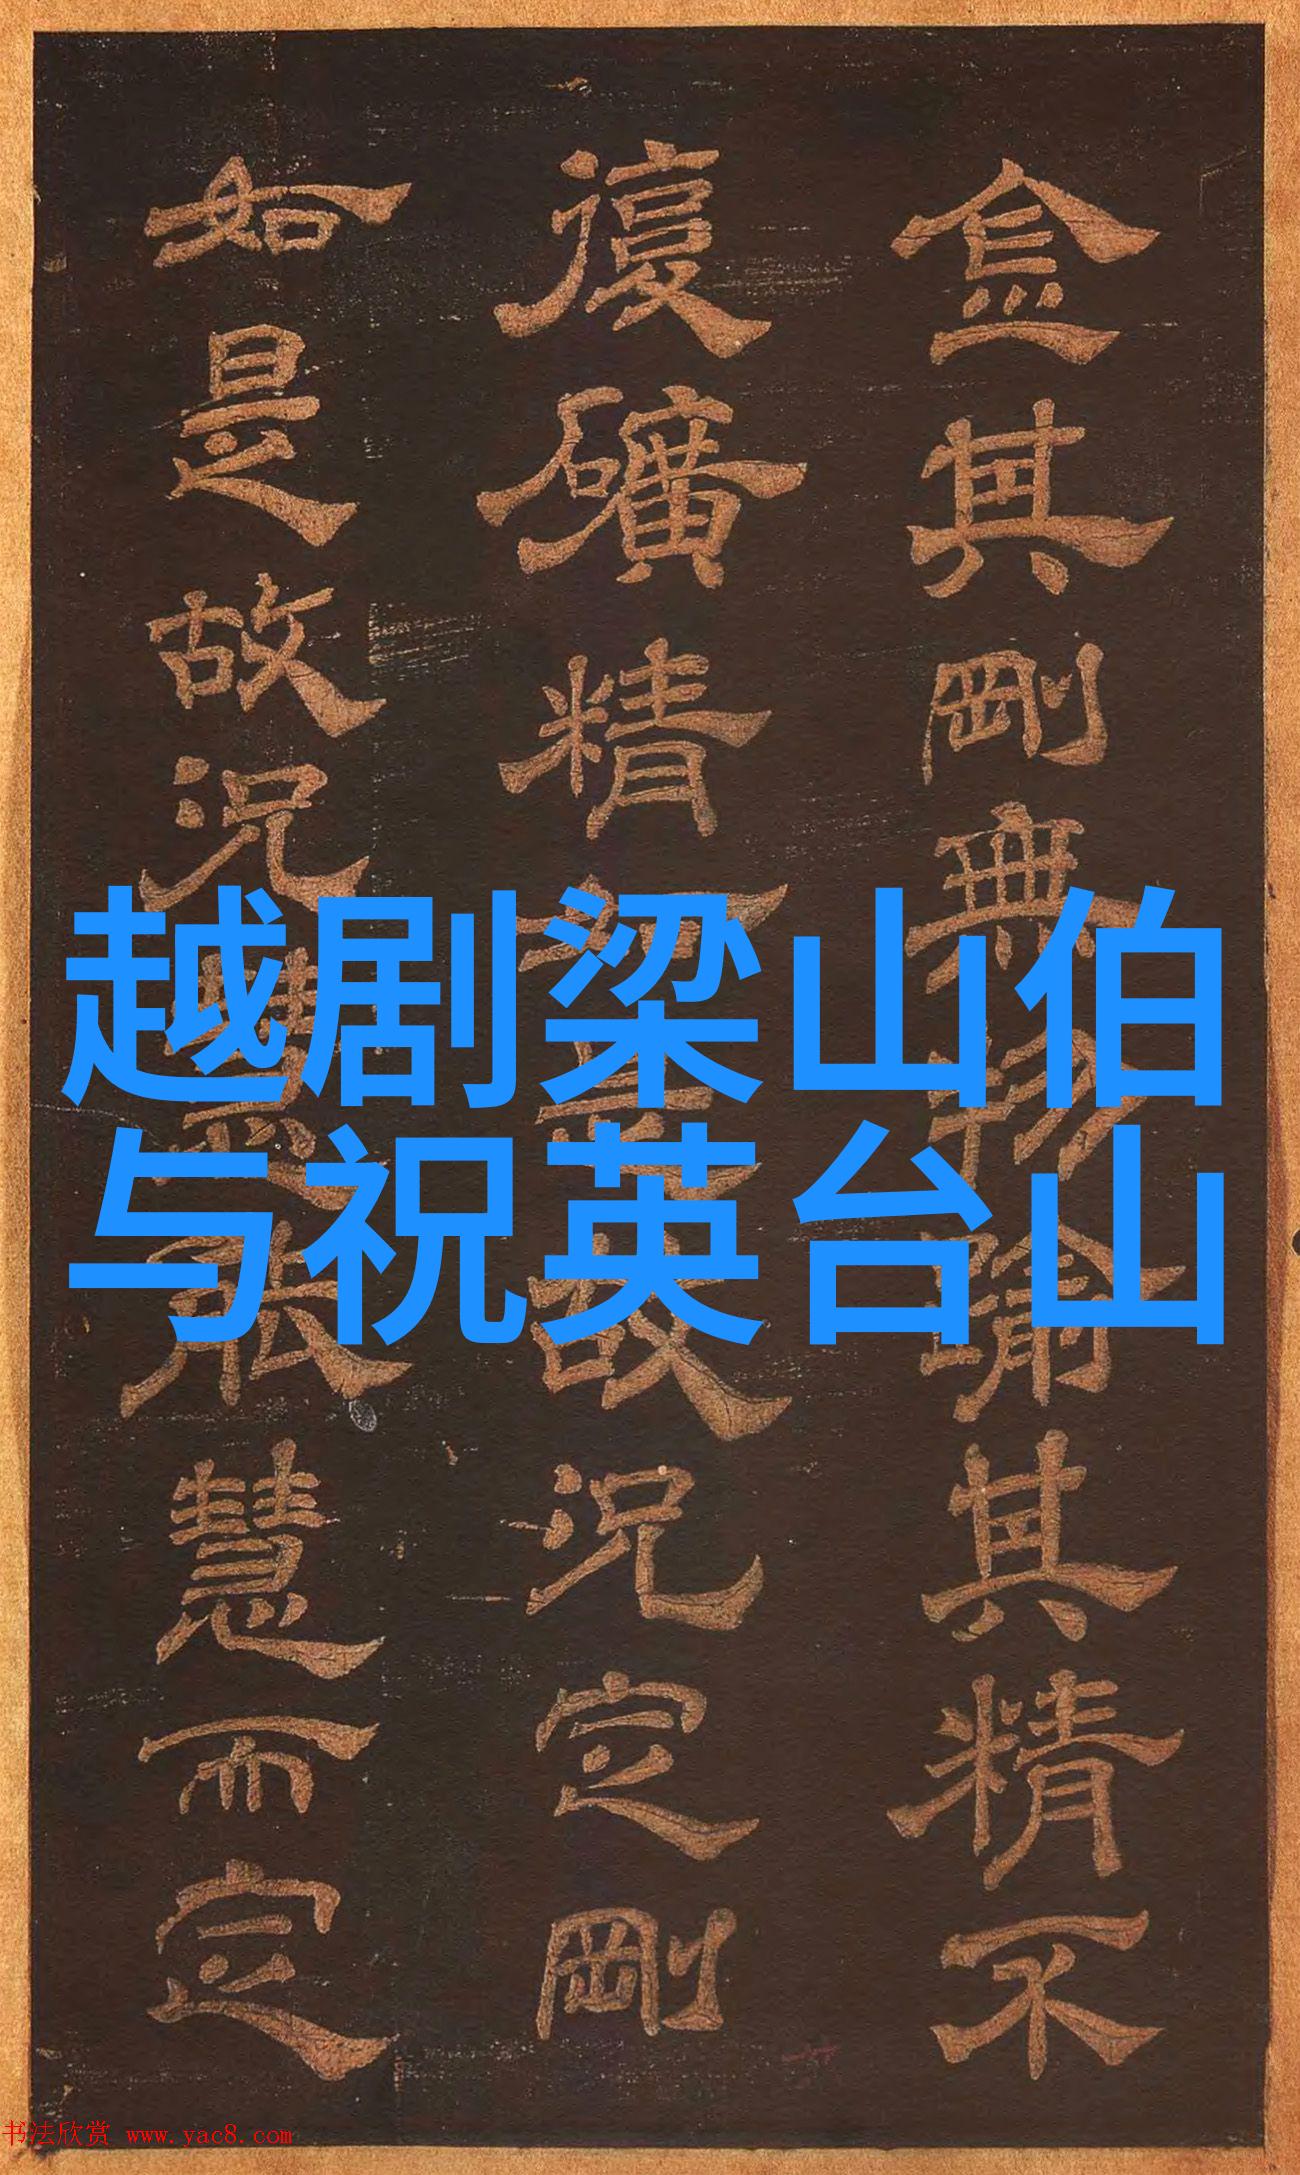 金其剛無
其精不
復礦精
故況定剛
如是故況
慧而定
越剧梁山伯
与祝英台山
书法欣赏 www.yac8.com